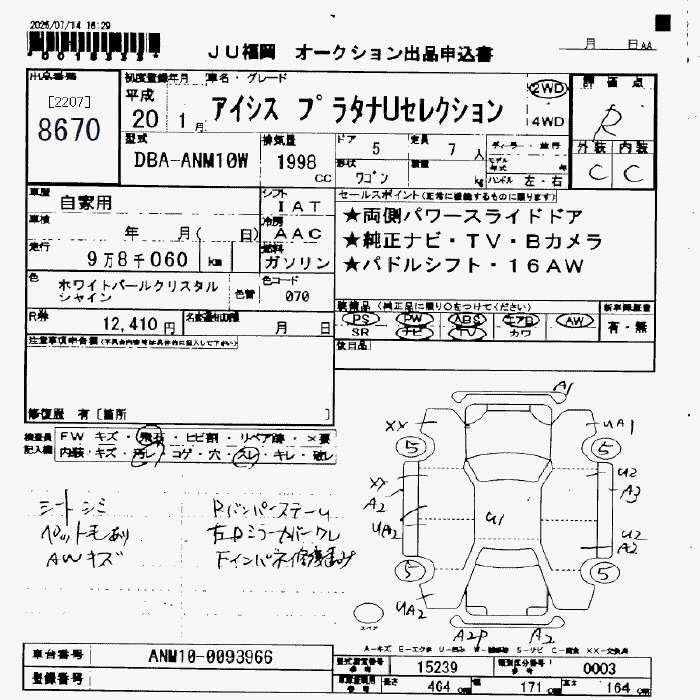 2025/07/14 16:29
JU福岡 オークション出品申込書
月 日 AA
出品番号
[2207]
8670
初度登録年月
平成
20 1月
車名・グレード
アイシス プラタナUセレクション
2WD
4WD
評価点
R
外装 内装
C C
型式
DBA-ANM10W
排気量
1998 CC
ドア
5
定員
7 人
形状
ワゴン
kg
ハンドル 左・右
車歴
自家用
シフト
IAT
車検
年 月( 日)
冷房
AAC
走行
9万8千060 km
燃料
ガソリン
セールスポイント(正常に機能するものに限ります)
★両側パワースライドドア
★純正ナビ・TV・Bカメラ
★パドルシフト・16AW
色
ホワイトパールクリスタル
シャイン
色替
色コード
070
R券
12,410 円
名義変更期限
月 日
装備品(純正品に限り○をつけてください)
PS PW ABS エアB AW
SR ナビ TV カワ
新車時保証書
有・無
後日品
注意事項申告欄(不具合内容等は具体的に記入して下さい)
修復歴 有[箇所 ]
検査員
記入欄
FW キズ・飛石・ヒビ割・リペア跡・×要
内装・キズ・汚レ・コゲ・穴・スレ・キレ・破レ
シートシミ
ペット毛あり
AWキズ
Rバンパーステー厶
右Dミラーカバークレ
A1
XX
UA1
5
5
XX
A2
UA2
U1
U2
A3
U2
A2
5
5
UA2
A2P
A2
スペア
A-キズ E-エクボ U-凹み W-補修跡 S-サビ C-腐食 XX-交換済
車台番号
ANM10-0093966
登録番号
型式指定番号
15239
類別区分番号
0003
長さ
464 cm
幅
171 cm
高さ
164 cm